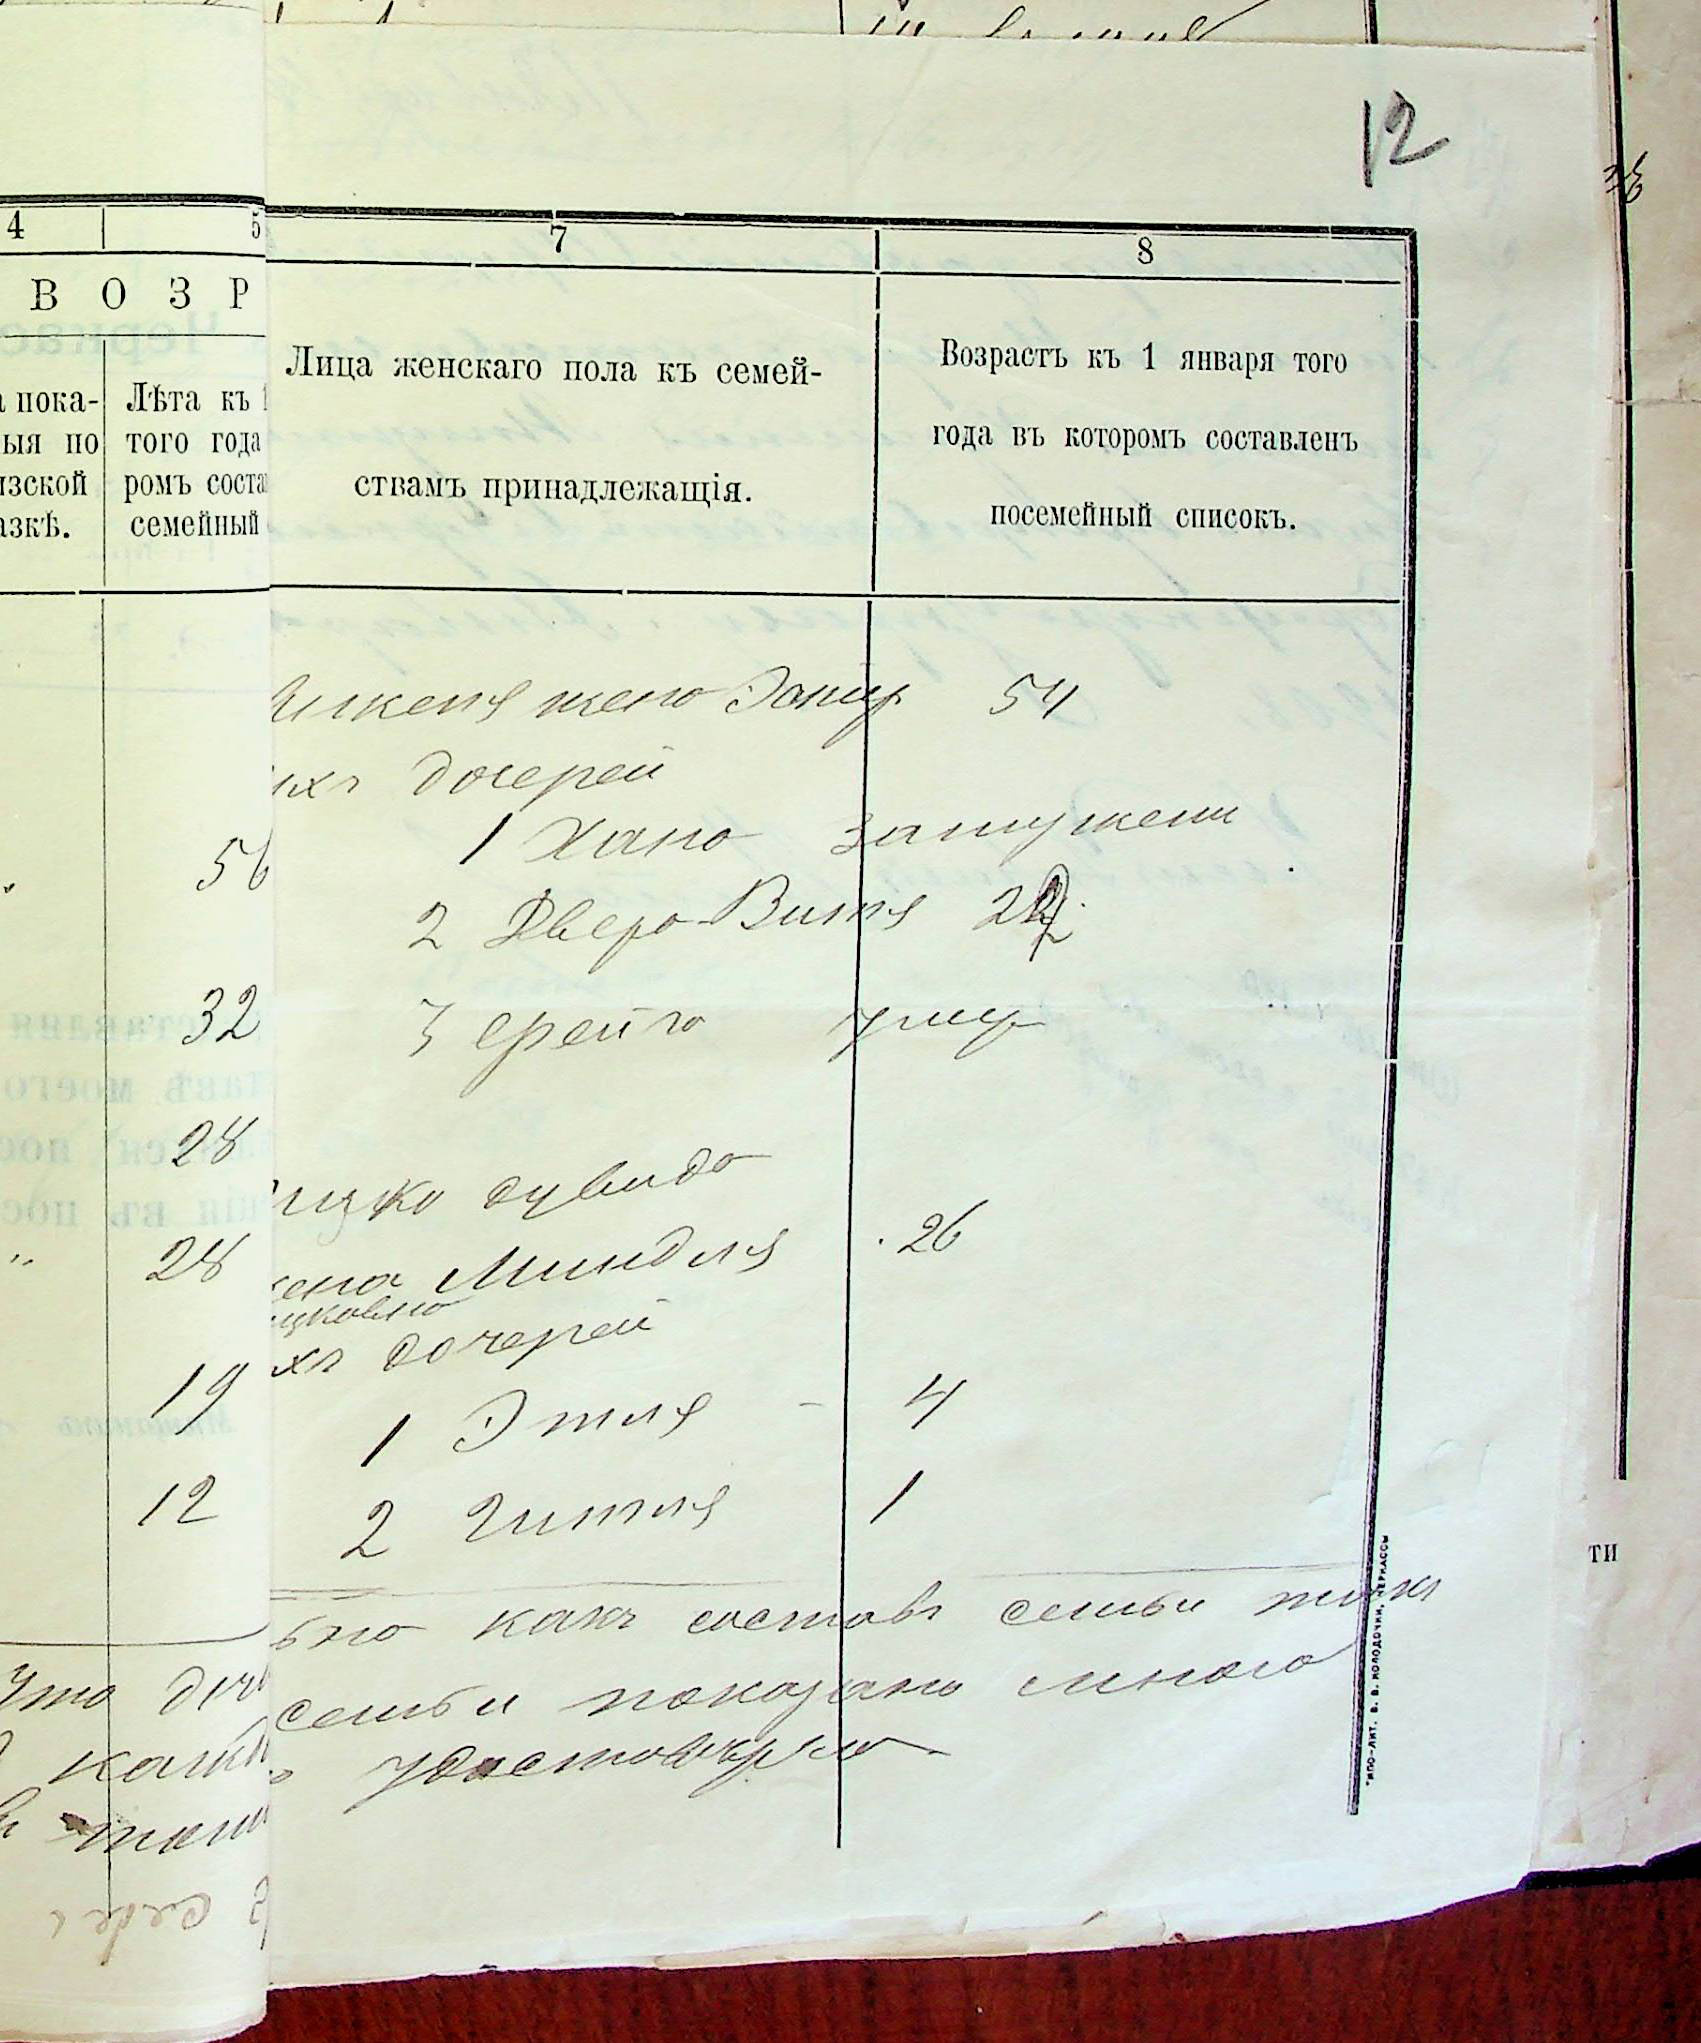 12
4 5 7 8
В О З Р
Лица женскаго пола къ семей-
ствамъ принадлежащія.
Возрастъ къ 1 января того
года въ которомъ составленъ
посемейный списокъ.
пока-
ыя по
азкѣ.
Лѣта къ 1
того года
ромъ соста
семейный
жена Эстир 54
ихъ дочерей
56
1 Хана замужем
2 Двера-Витя 22
32
3 Фрейга умер
28
Ицко Дувида
28
жена Миндля 26
ицковна
ихъ дочерей
19
1 Этля - 4
12
2 Гитля 1
какъ составъ семьи
Что
семьи показано мною
удостовѣряю
ТИПО-ЛИТ. В. В. КОЛОДОЧКИ, ЧЕРКАССЫ
ти